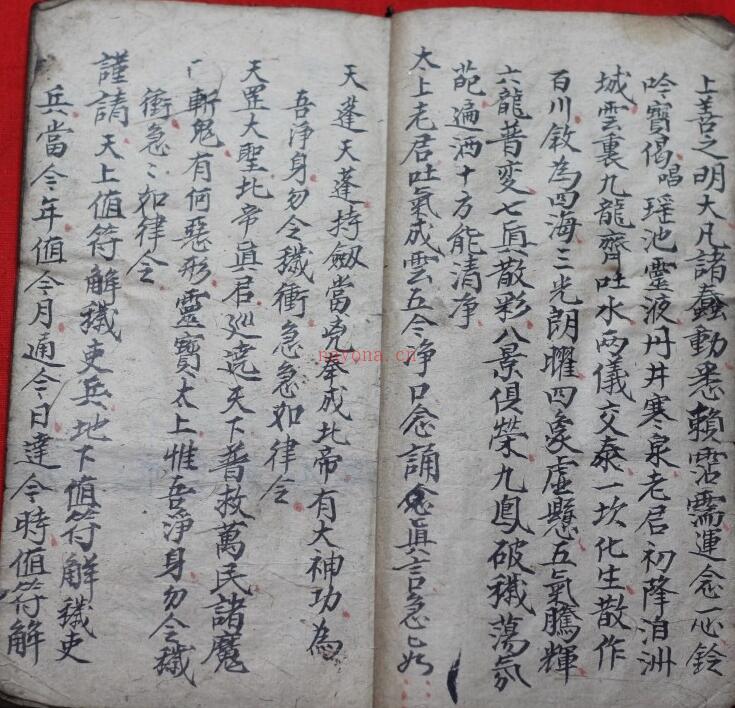 上善之明大凡諸蠢動悉賴霑濡運念一心鈴
吟寶偈唱瑤池靈液丹井寒泉老君初降泊洲
城雲裏九龍齊吐水两儀交泰一坎化生散作
百川敘為四海三光朗曜四象虛懸五氣騰輝
六龍普变七眞散彩八景俱榮九鳳破穢蕩氛
葩遍洒十方能清净
太上老君吐氣成雲五今净口念誦眞言急匕如
天蓬天蓬持劔當兇奉成北帝有大神功為
吾淨身勿令穢衝急急如律令
天罡大聖北帝眞君巡遶天下普救萬民諸魔
斬鬼有何惡形靈寶太上惟吾淨身勿令穢
衝急〻如律令
謹請天上值符解穢吏兵地下值符解穢吏
兵當今年值今月通今日達今時值符解
nayona.cn